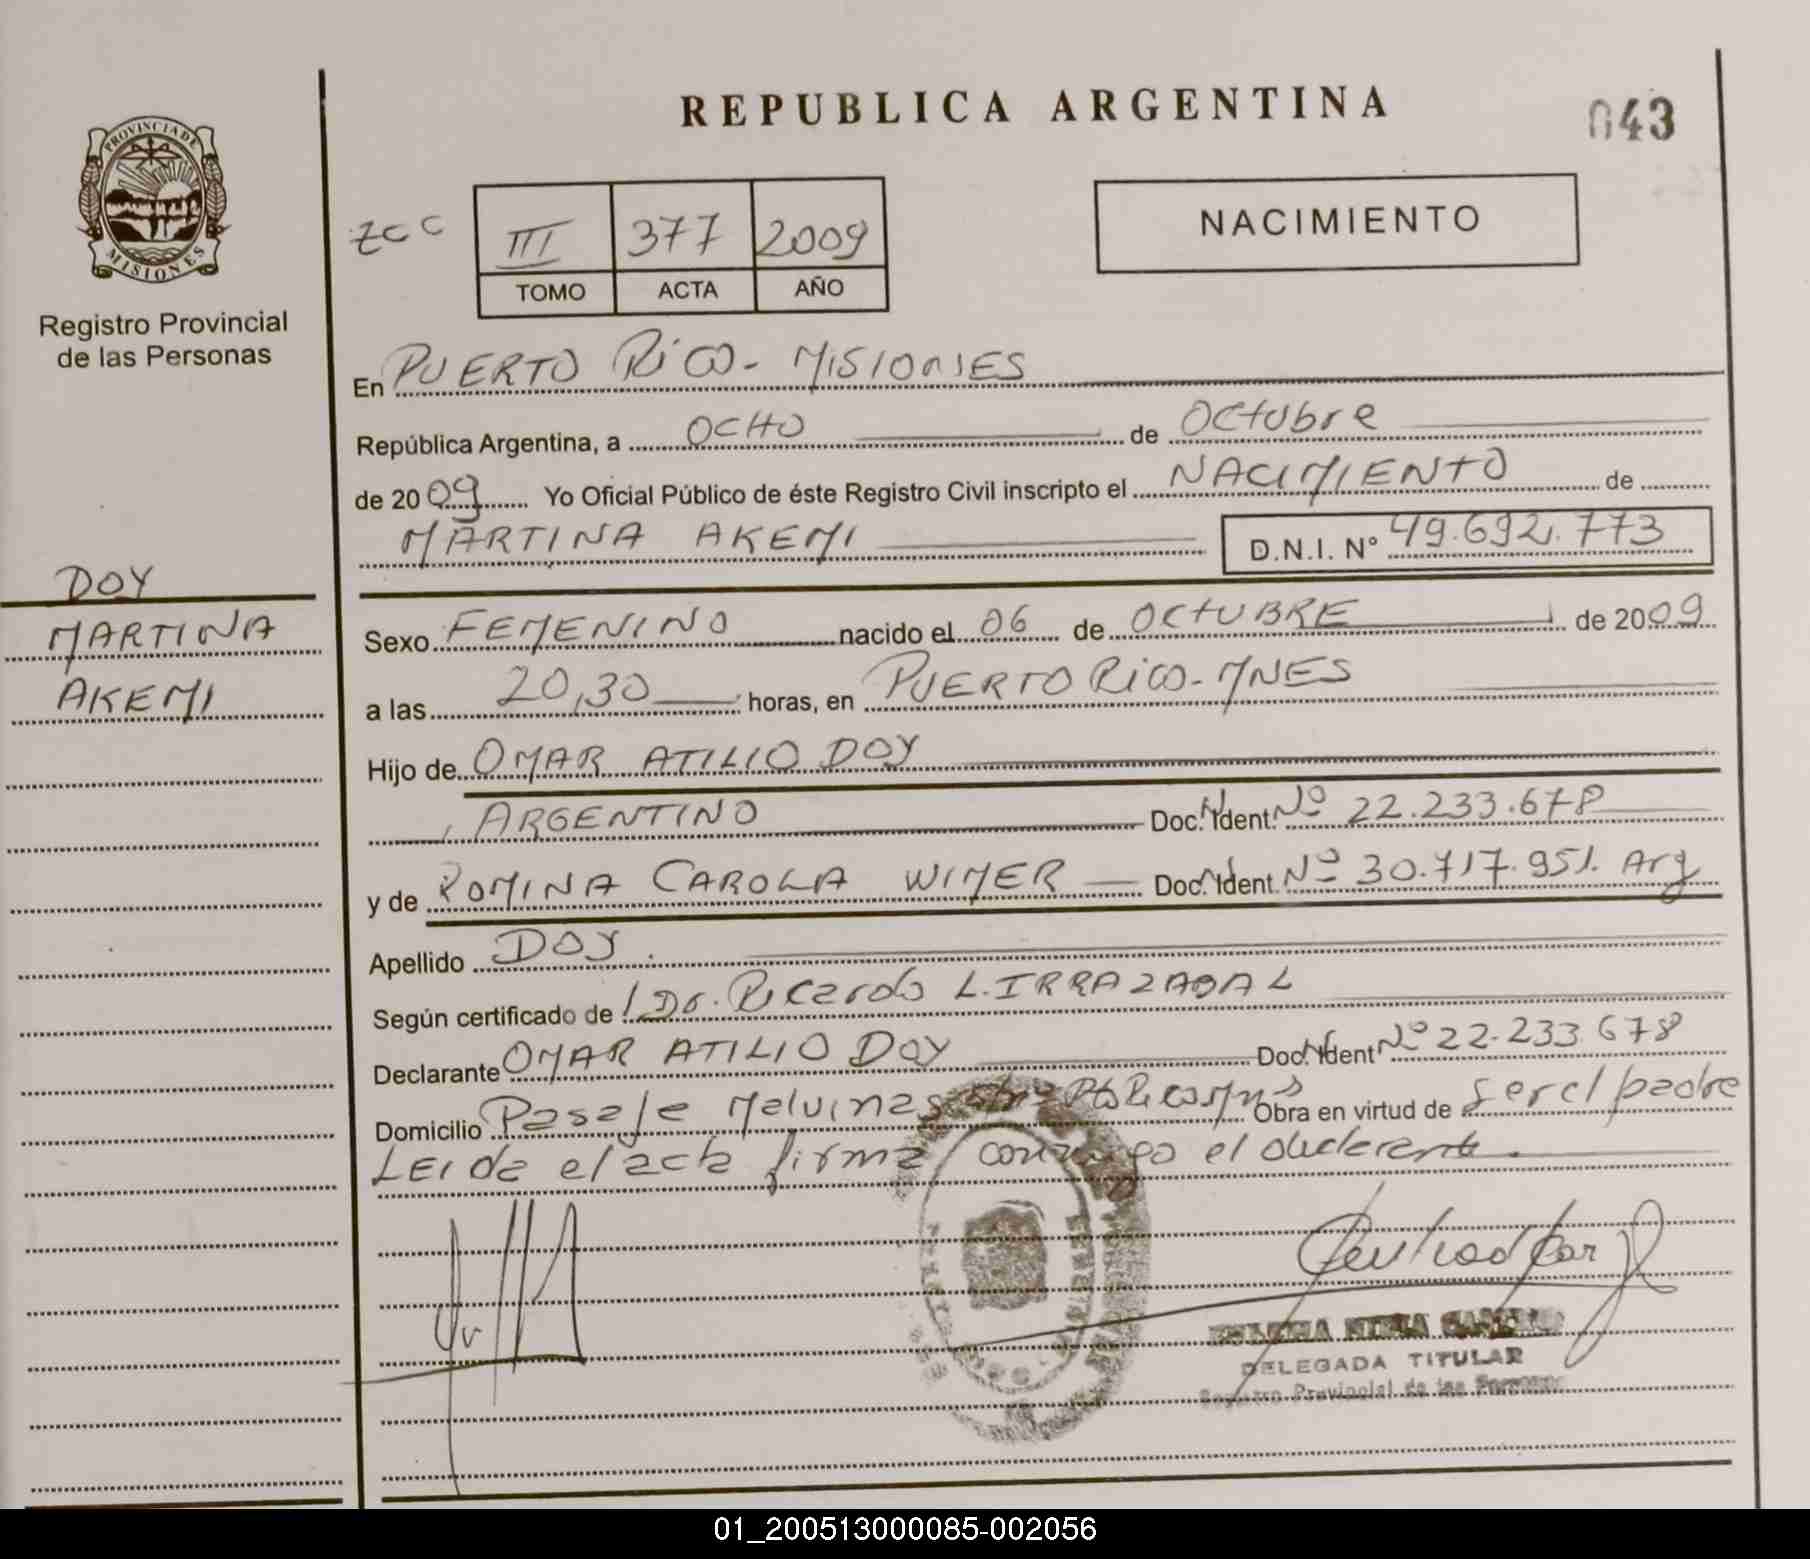 REPUBLICA ARGENTINA
043
PROVINCIA DE
MISIONES
Registro Provincial
de las Personas
III 377 2009
TOMO ACTA AÑO
NACIMIENTO
En PUERTO RICO - MISIONES
República Argentina, a OCHO de Octubre
de 2009 Yo Oficial Público de éste Registro Civil inscripto el NACIMIENTO de
MARTINA AKEMI D.N.I. Nº 49.692.773
DOY
MARTINA
AKEMI
Sexo FEMENINO nacido el 06 de OCTUBRE de 2009
a las 20,30 horas, en PUERTO RICO - MNES
Hijo de OMAR ATILIO DOY
ARGENTINO Doc. Ident. Nº 22.233.678
y de ROMINA CAROLA WIMER Doc. Ident. Nº 30.717.951. Arg
Apellido DOY.
Según certificado de Dr. Ricardo L. IRRAZABAL
Declarante OMAR ATILIO DOY Doc. Ident Nº 22.233.678
Domicilio Pasaje Malvinas Pto Rico Mns Obra en virtud de ser el padre
LEIda el acta firma conmigo el declarante.
DELEGADA TITULAR
Registro Provincial de las Personas
01_200513000085-002056